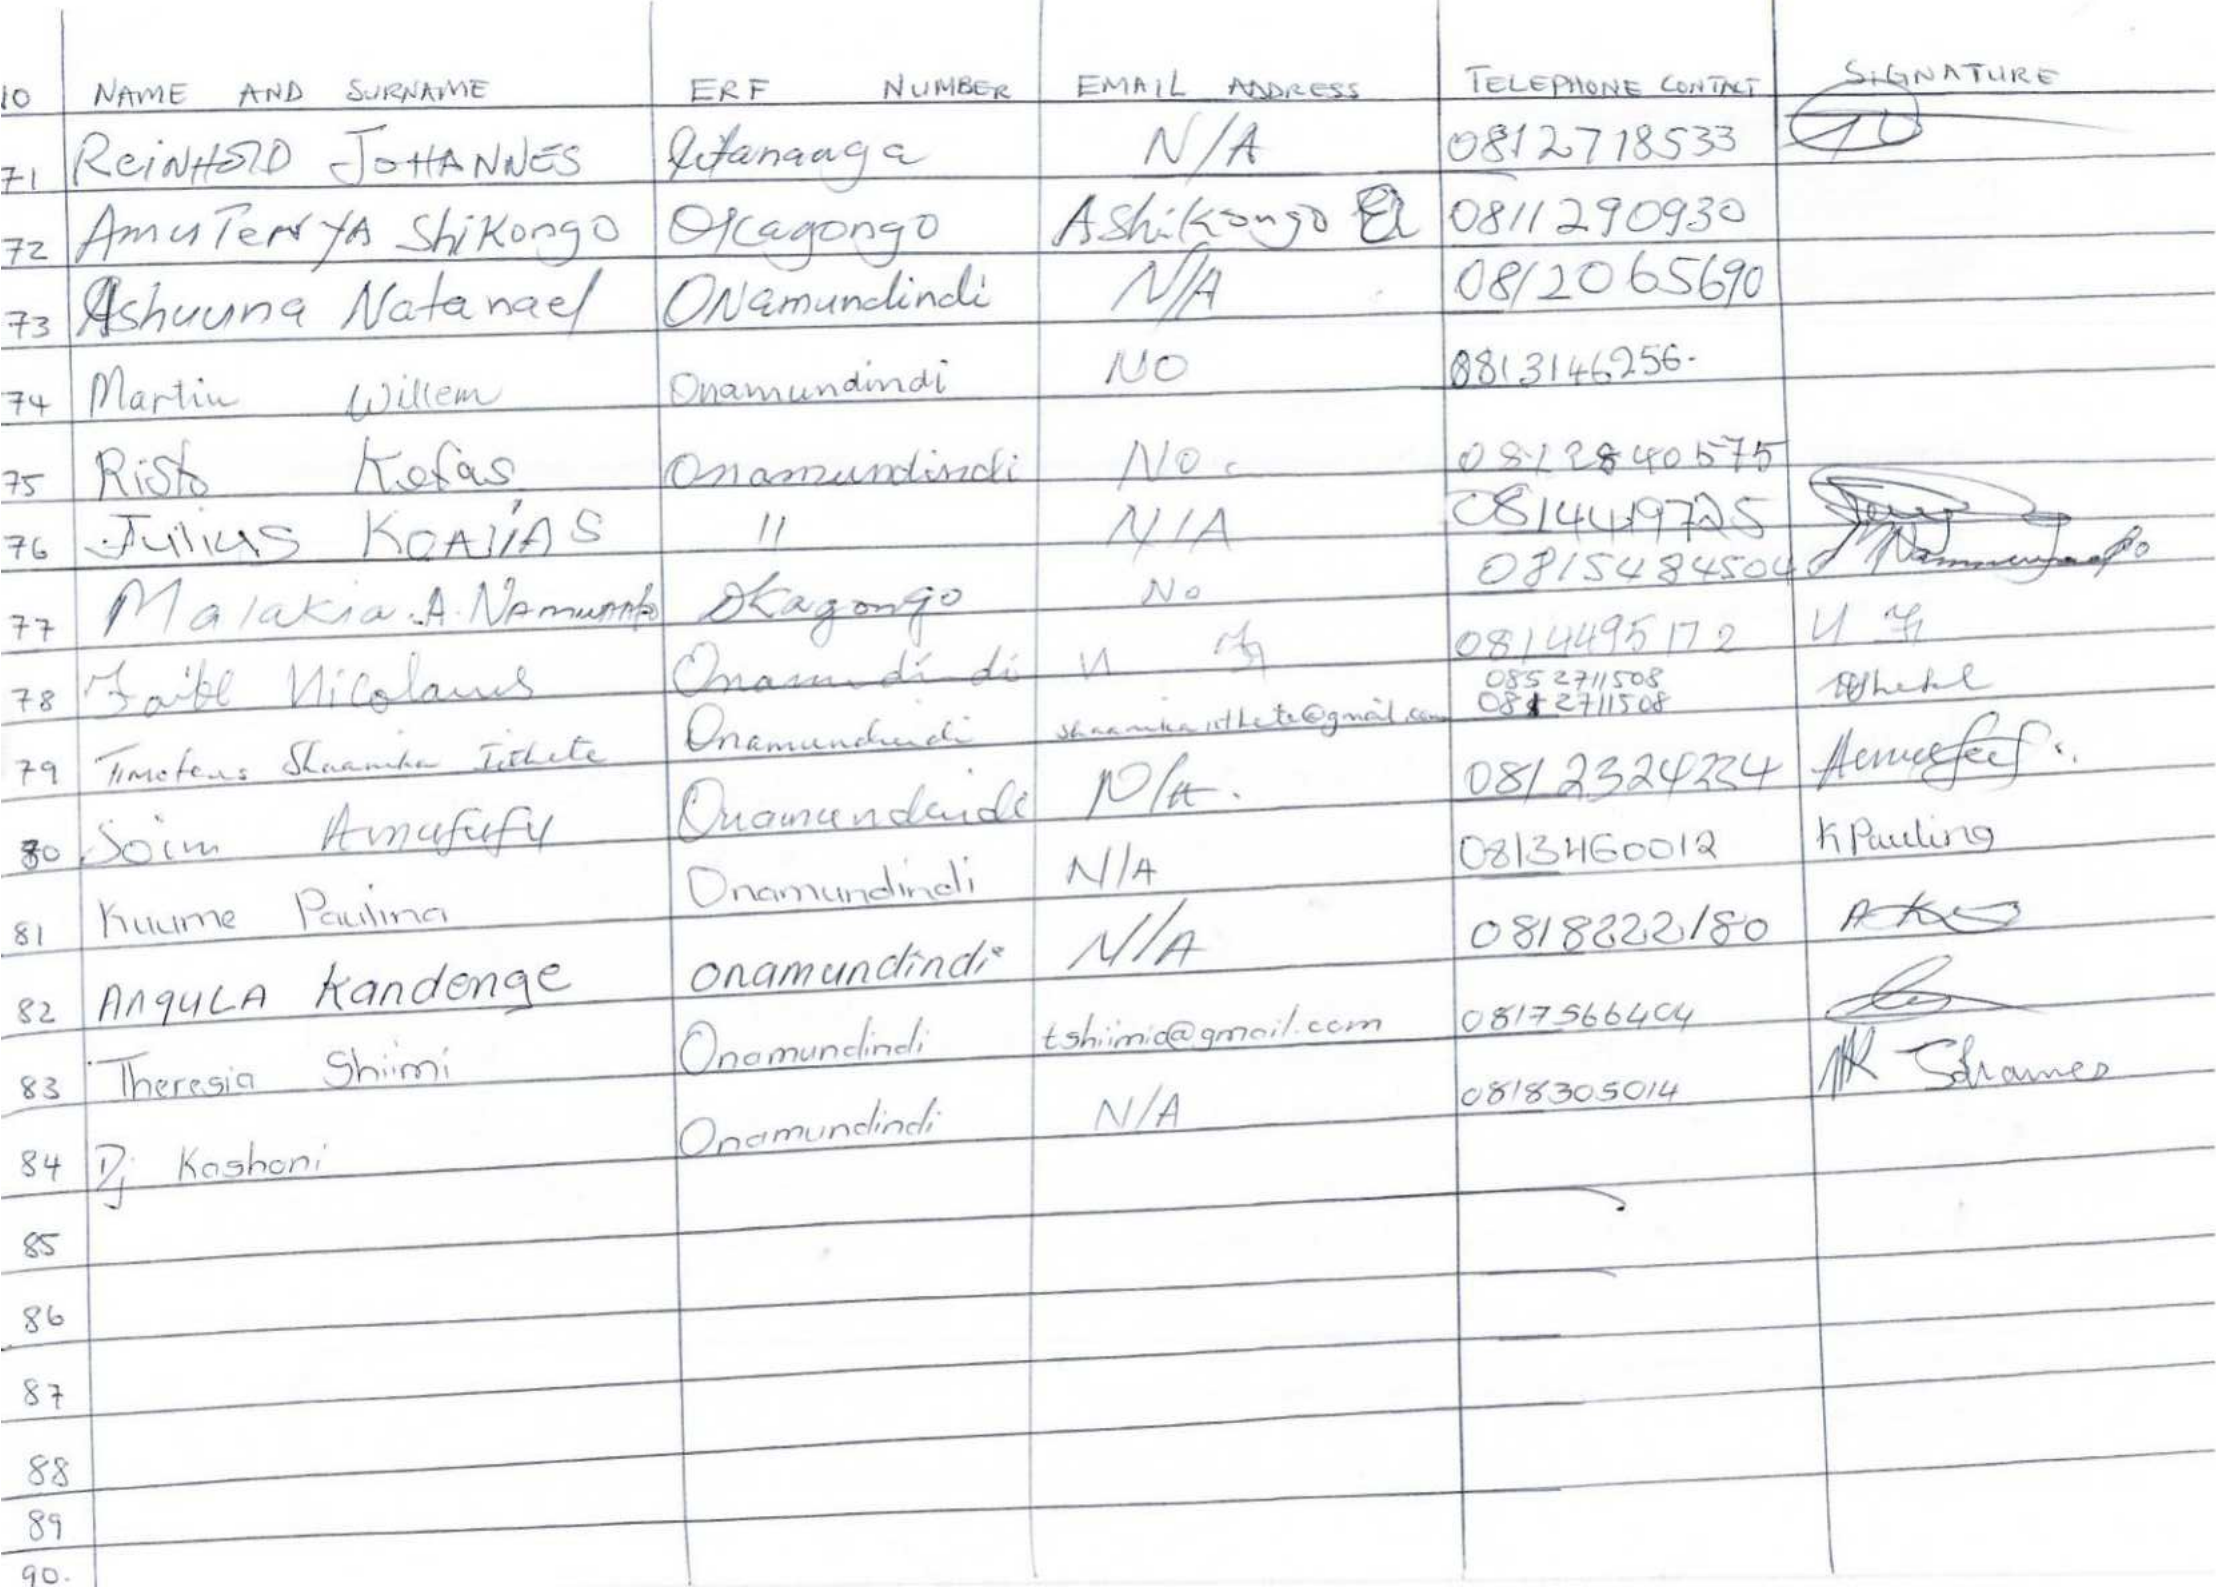 NO NAME AND SURNAME ERF NUMBER EMAIL ADDRESS TELEPHONE CONTACT SIGNATURE
71 REINHOLD JOHANNES N/A 0812718533
72 AmuTenYA Shikongo Okagongo AShikongo 0811290930
73 Ashuuna Natanael ONamundindi N/A 0812065690
74 Martin Willem Onamundindi NO 0813146256.
75 Risto Kefas Onamundindi No. 0812840575
76 Julius 11 N/A 0814419725
77 Malakia .A. Okagongo No 0815484504
78 Nicolaus Onamundindi 0814495172
79 Timoteus Shaanika Iithete Onamundindi 0852711508
0812711508
80 Amufufu Onamundindi N/A. 0812324234
81 Kuume Paulina Onamundindi N/A 0813460012 K Paulina
82 AngULA Kandenge onamundindi N/A 0818222180
83 Theresia Shiimi Onamundindi tshiimia@gmail.com 0817566404
84 Dj Kashoni Onamundindi N/A 0818305014
85
86
87
88
89
90.